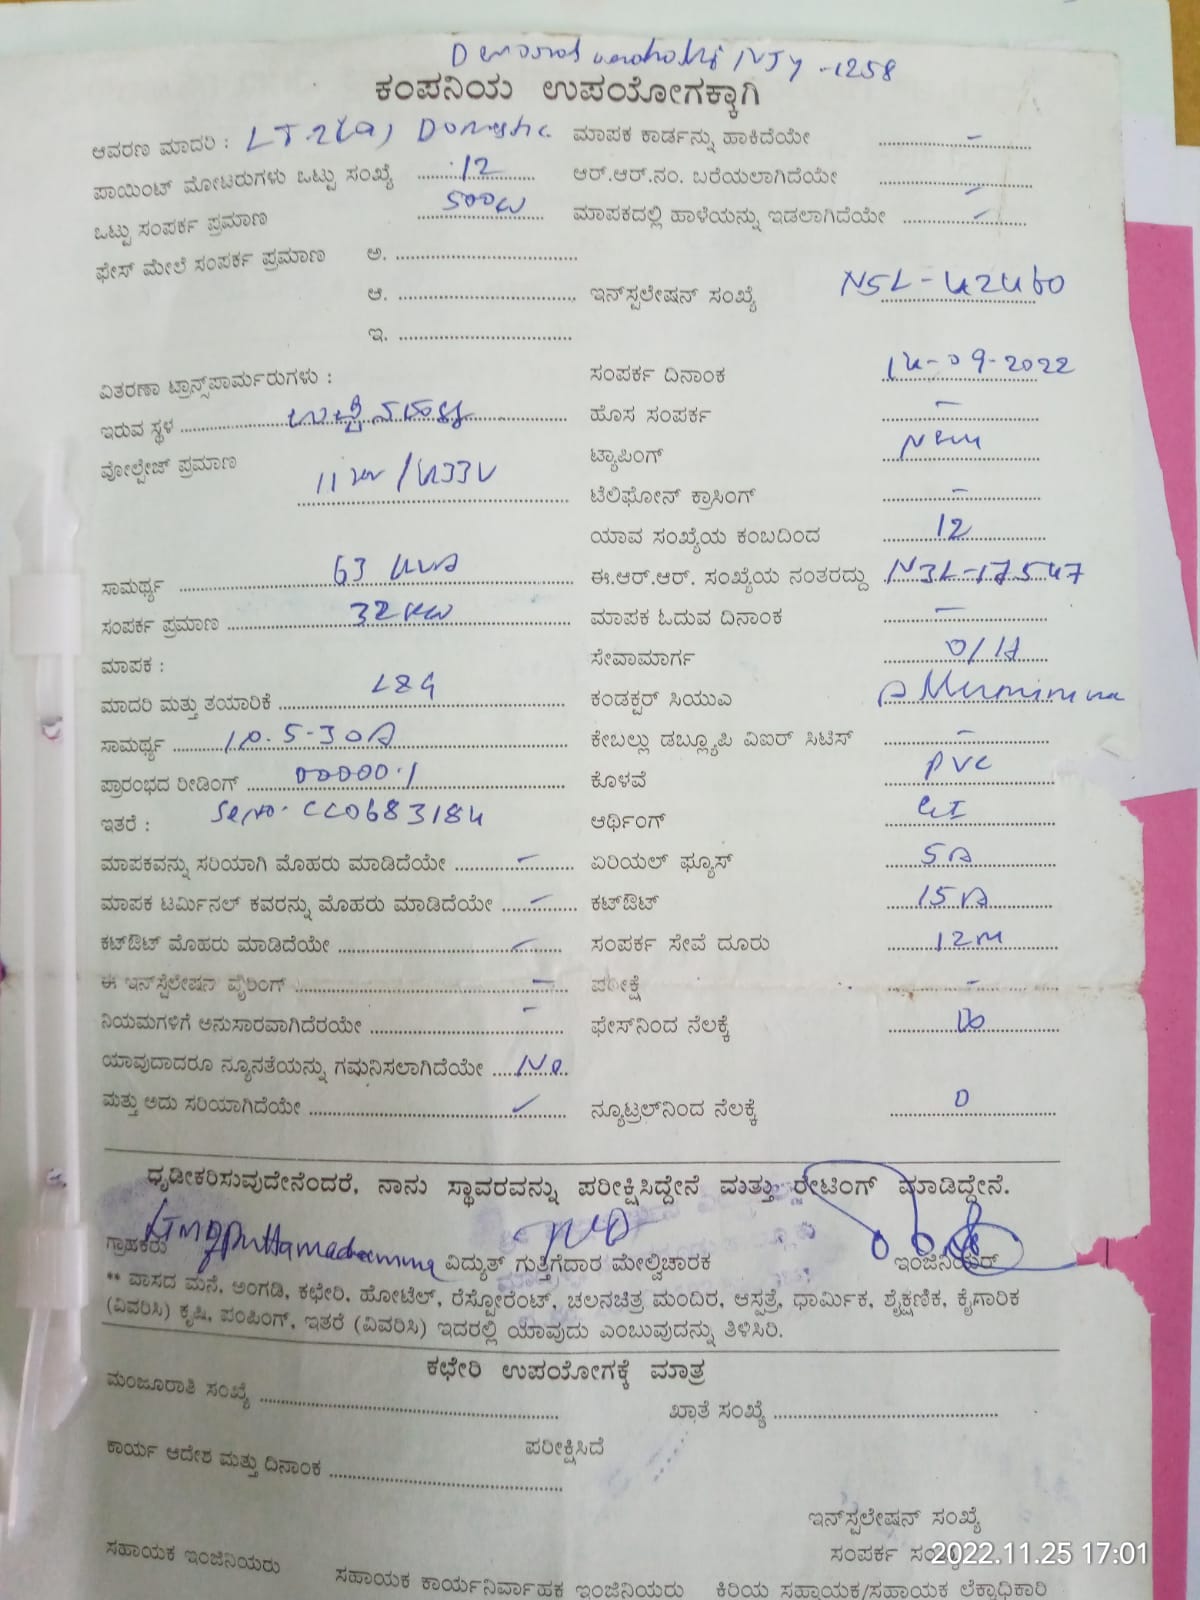 NJY-1258
ಕಂಪನಿಯ ಉಪಯೋಗಕ್ಕಾಗಿ
ಆವರಣ ಮಾದರಿ : LT-2(a) Domestic ಮಾಪಕ ಕಾರ್ಡನ್ನು ಹಾಕಿದೆಯೇ –
ಪಾಯಿಂಟ್ ಮೋಟರುಗಳು ಒಟ್ಟು ಸಂಖ್ಯೆ 12 ಆರ್.ಆರ್.ನಂ. ಬರೆಯಲಾಗಿದೆಯೇ –
ಒಟ್ಟು ಸಂಪರ್ಕ ಪ್ರಮಾಣ 500W ಮಾಪಕದಲ್ಲಿ ಹಾಳೆಯನ್ನು ಇಡಲಾಗಿದೆಯೇ –
ಫೇಸ್ ಮೇಲೆ ಸಂಪರ್ಕ ಪ್ರಮಾಣ ಅ.
ಆ. ಇನ್‌ಸ್ಪಲೇಷನ್ ಸಂಖ್ಯೆ NSL-42460
ಇ.
ವಿತರಣಾ ಟ್ರಾನ್ಸ್‌ಪಾರ್ಮರುಗಳು : ಸಂಪರ್ಕ ದಿನಾಂಕ 14-09-2022
ಇರುವ ಸ್ಥಳ ಹೊಸ ಸಂಪರ್ಕ –
ವೋಲ್ಟೇಜ್ ಪ್ರಮಾಣ 11kv/433V ಟ್ಯಾಪಿಂಗ್ New
ಟೆಲಿಫೋನ್ ಕ್ರಾಸಿಂಗ್ –
ಯಾವ ಸಂಖ್ಯೆಯ ಕಂಬದಿಂದ 12
ಸಾಮರ್ಥ್ಯ 63 KVA ಈ.ಆರ್.ಆರ್. ಸಂಖ್ಯೆಯ ನಂತರದ್ದು N3L-17547
ಸಂಪರ್ಕ ಪ್ರಮಾಣ 32KW ಮಾಪಕ ಓದುವ ದಿನಾಂಕ –
ಮಾಪಕ : ಸೇವಾಮಾರ್ಗ O/H
ಮಾದರಿ ಮತ್ತು ತಯಾರಿಕೆ L&G ಕಂಡಕ್ಟರ್ ಸಿಯುಎ
ಸಾಮರ್ಥ್ಯ 1P.5-30A ಕೇಬಲ್ಲು ಡಬ್ಲ್ಯೂಪಿ ವಿಐರ್ ಸಿಟಿಸ್ –
ಪ್ರಾರಂಭದ ರೀಡಿಂಗ್ 00000.1 ಕೊಳವೆ PVC
ಇತರೆ : Se no- CC0683184 ಆರ್ಥಿಂಗ್ GI
ಮಾಪಕವನ್ನು ಸರಿಯಾಗಿ ಮೊಹರು ಮಾಡಿದೆಯೇ – ಏರಿಯಲ್ ಫ್ಯೂಸ್ 5A
ಮಾಪಕ ಟರ್ಮಿನಲ್ ಕವರನ್ನು ಮೊಹರು ಮಾಡಿದೆಯೇ – ಕಟ್‌ಔಟ್ 15A
ಕಟ್‌ಔಟ್ ಮೊಹರು ಮಾಡಿದೆಯೇ – ಸಂಪರ್ಕ ಸೇವೆ ದೂರು 12m
ಈ ಇನ್‌ಸ್ಪೆಲೇಷನ ವೈರಿಂಗ್ – ಪರೀಕ್ಷೆ –
ನಿಯಮಗಳಿಗೆ ಅನುಸಾರವಾಗಿದೆರಯೇ – ಫೇಸ್‌ನಿಂದ ನೆಲಕ್ಕೆ
ಯಾವುದಾದರೂ ನ್ಯೂನತೆಯನ್ನು ಗಮನಿಸಲಾಗಿದೆಯೇ No
ಮತ್ತು ಅದು ಸರಿಯಾಗಿದೆಯೇ ✓ ನ್ಯೂಟ್ರಲ್‌ನಿಂದ ನೆಲಕ್ಕೆ 0
ಧೃಡೀಕರಿಸುವುದೇನೆಂದರೆ, ನಾನು ಸ್ಥಾವರವನ್ನು ಪರೀಕ್ಷಿಸಿದ್ದೇನೆ ಮತ್ತು ರೇಟಿಂಗ್ ಮಾಡಿದ್ದೇನೆ.
ಗ್ರಾಹಕರು ವಿದ್ಯುತ್ ಗುತ್ತಿಗೆದಾರ ಮೇಲ್ವಿಚಾರಕ ಇಂಜಿನಿಯರ್
** ವಾಸದ ಮನೆ, ಅಂಗಡಿ, ಕಛೇರಿ, ಹೋಟೆಲ್, ರೆಸ್ಟೋರೆಂಟ್, ಚಲನಚಿತ್ರ ಮಂದಿರ, ಆಸ್ಪತ್ರೆ, ಧಾರ್ಮಿಕ, ಶೈಕ್ಷಣಿಕ, ಕೈಗಾರಿಕ
(ವಿವರಿಸಿ) ಕೃಷಿ, ಪಂಪಿಂಗ್, ಇತರೆ (ವಿವರಿಸಿ) ಇದರಲ್ಲಿ ಯಾವುದು ಎಂಬುವುದನ್ನು ತಿಳಿಸಿರಿ.
ಕಛೇರಿ ಉಪಯೋಗಕ್ಕೆ ಮಾತ್ರ
ಮಂಜೂರಾತಿ ಸಂಖ್ಯೆ ಖಾತೆ ಸಂಖ್ಯೆ
ಪರೀಕ್ಷಿಸಿದೆ
ಕಾರ್ಯ ಆದೇಶ ಮತ್ತು ದಿನಾಂಕ
ಇನ್‌ಸ್ಪಲೇಷನ್ ಸಂಖ್ಯೆ
ಸಂಪರ್ಕ
2022.11.25 17:01
ಸಹಾಯಕ ಇಂಜಿನಿಯರು ಸಹಾಯಕ ಕಾರ್ಯನಿರ್ವಾಹಕ ಇಂಜಿನಿಯರು ಕಿರಿಯ ಸಹಾಯಕ/ಸಹಾಯಕ ಲೆಕ್ಕಾಧಿಕಾರಿ